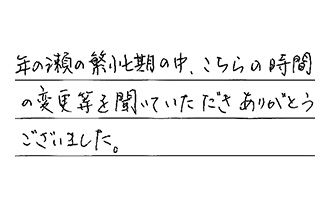 年の瀬の繁忙期の中、こちらの時間
の変更等を聞いていただきありがとう
ございました。